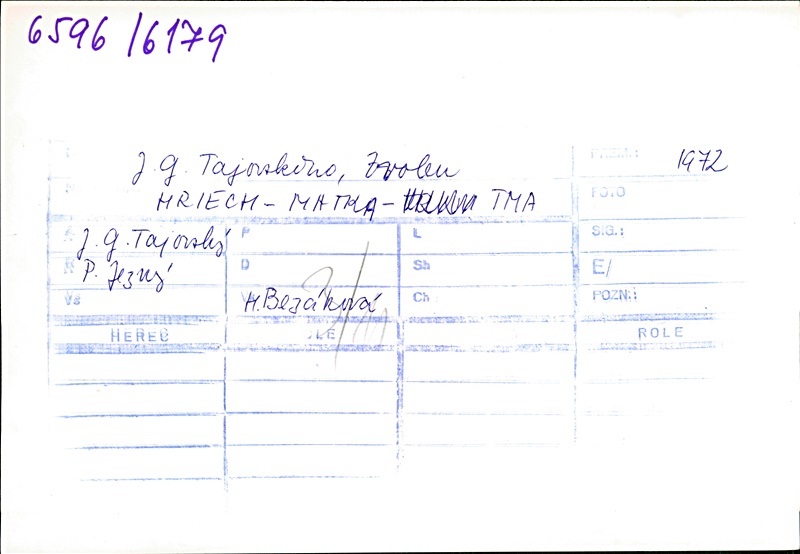 6596/6179
J. G. Tajovského, Zvolen
PREM.: 1972
HRIECH - MATKA - TMA
FOTO
J. G. Tajovský P L SIG.:
P. Jezný D Sh E/
Vs H. Bezáková Ch POZN.:
HEREC ROLE